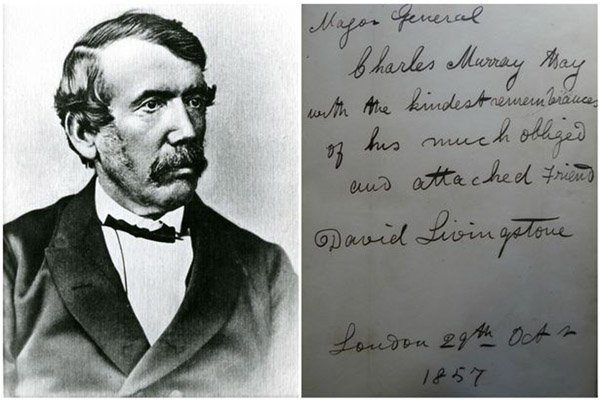 Major General
Charles Murray Hay
with the kindest remembrances
of his much obliged
and attached Friend
David Livingstone
London 29th Oct r
1857